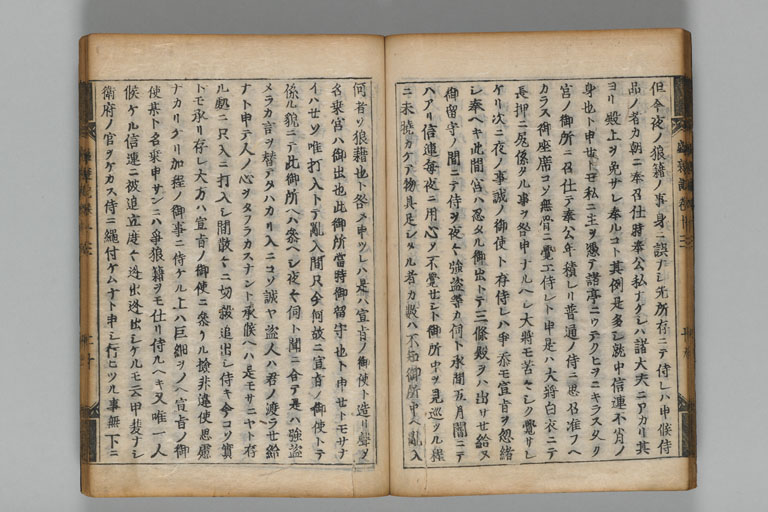 但今夜ノ狼籍ノ事身ニ誤ナシ先所存ニテ侍レハ申候侍
品ノ者カ朝ニ奉召仕時奉公私ナケレハ諸大夫ニアカリ其
ヨリ殿上ヲ免サレ奉ルコト其例是多シ就中信連不肖ノ
身也ト申セトモ私ニ主ヲ憑テ諸亭ニウテクヒヲニキラスタヽ
宮ノ御所ニ召仕テ奉公年積レリ普通ノ侍ニ思召准フヘ
カラス御座席コソ無骨ニ覺エ侍レト申是ハ大将白衣ニテ
長押ニ尻係タル事ヲ咎申ナルヘシ大将モ苦々シク覺サレ
ケリ次ニ夜ノ事誠ノ御使ト存侍レハ争忝モ宣旨ヲ忽緒
シ奉ヘキ此間宮ハ忍タル御出トテ三條殿ヲハ出サセ給ヌ
御留守ノ間ニテ侍ヲ夜々強盗等カ伺ト承間五月闇ニテ
ハアリ信連毎夜ニ用心ヲ不覺セシト御所中ヲ見巡ツル程
ニ未曉カケテ物具足シタル者カ数ハ不知御所中ヘ亂入
何者ソ狼籍也ト咎メ申ツレハ是ハ宣旨ノ御使ト造リ聲ヲ
名乘宮ハ御出也此御所當時御留守也ト申セトモサナ
イハセソ唯打入トテ亂入間只今何故ニ宣旨ノ御使トテ
係ル貌ニテ此御所ヘハ參ヘシ夜々伺ト聞ニ合テ是ハ強盗
メラカ言ヲ替テタハカリ入ニコソ誠ヤ盗人ハ君ノ渡ラセ給
ナト申テ人ノ心ヲタフラカスナント承候ヘハ是モサニヤト存
ル處ニ只入ニ打入シ間散々ニ切殺追出シ侍キ今コソ實
トモ承リ存シ大方ハ宣旨ノ御使ニ參ケル撿非違使思慮
ナカリケリ加程ノ御事ニ侍ケル上ハ巨細ヲノヘ宣旨ノ御
使某ト名乘申サンニハ爭狼籍ヲモ仕リ侍ルヘキ又唯一人
候ケル信連ニ被追立度々迯出迯出シケルモ云甲斐ナシ
衛府ノ官ヲケカス侍ニ繩付ケムナト申シ行ヒツル事無下ニ